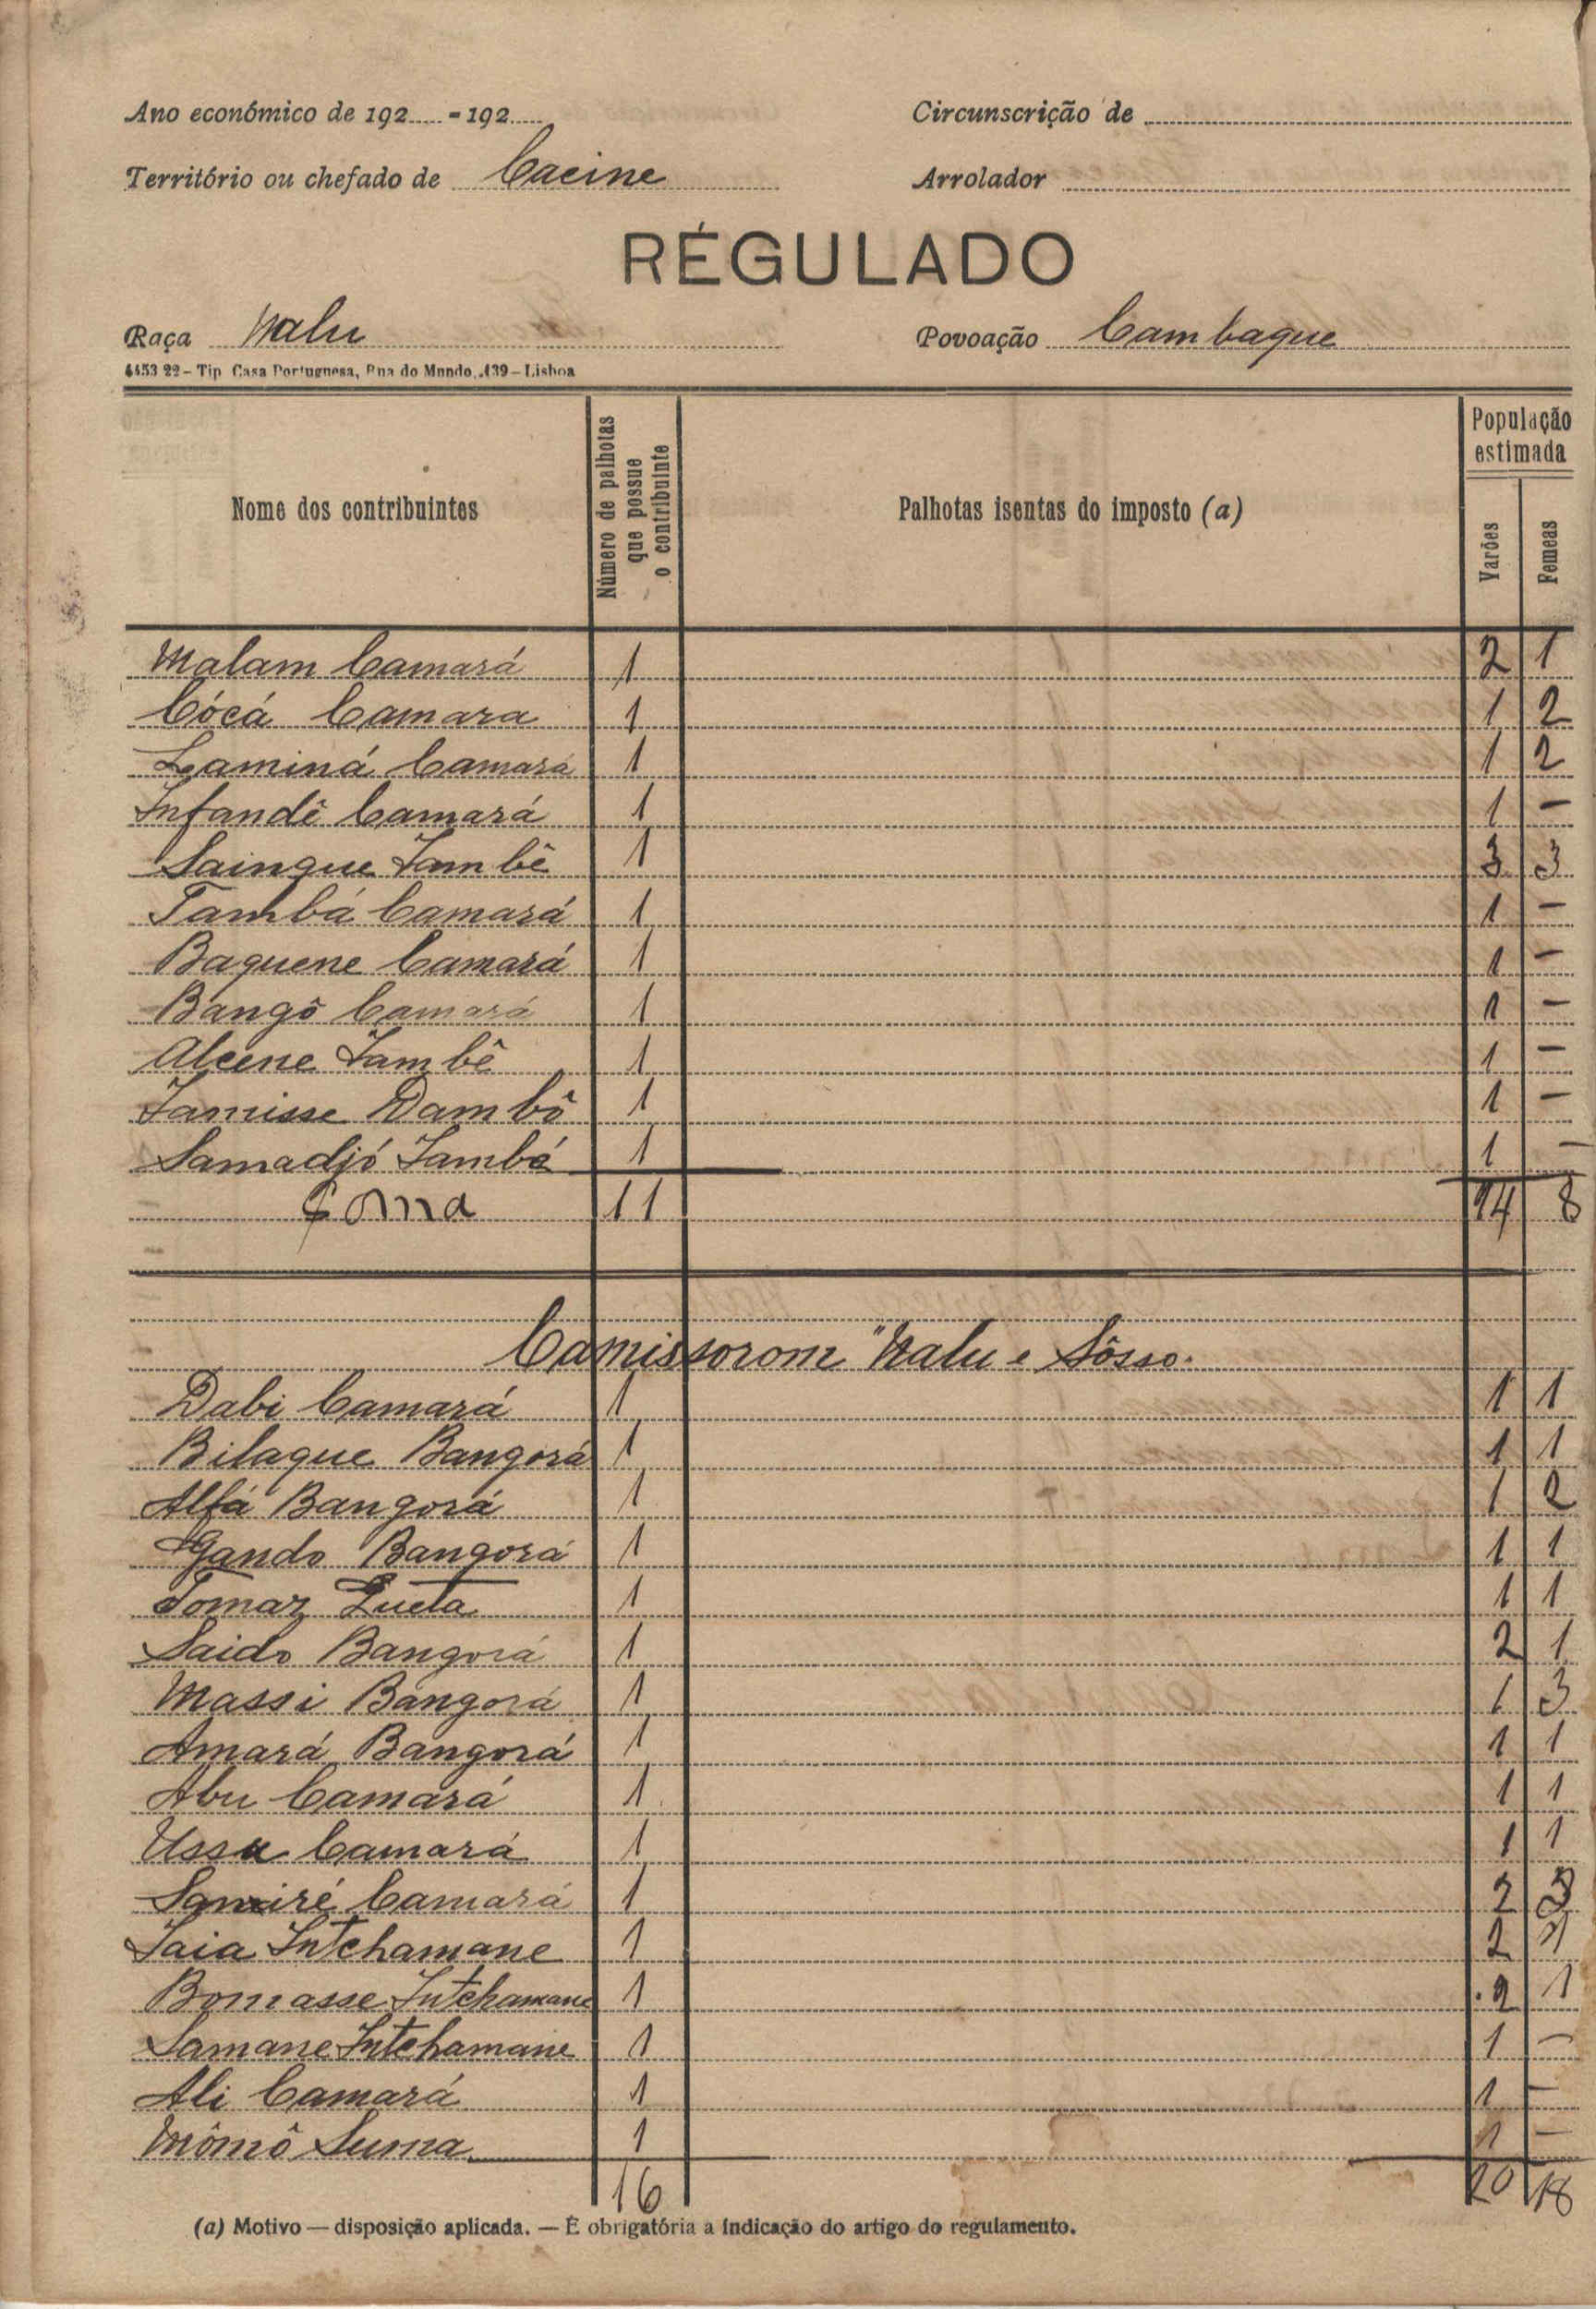 Ano económico de 192.....-192.....
Circunscrição de
Território ou chefado de Cacine
Arrolador
RÉGULADO
Raça Nalu
Povoação Cambaque
4453 22 – Tip Casa Portuguesa, Rua do Mundo, 139 – Lisboa
Nome dos contribuintes
Número de palhotas que possue o contribuinte
Palhotas isentas do imposto (a)
População estimada
Varões
Femeas
Malam Camará 1 2 1
Cócá Camara 1 1 2
Laminá Camará 1 1 2
Infandê Camará 1 1 –
Saingue Tambê 1 3 3
Tambá Camará 1 1 –
Baquene Camará 1 1 –
Bangô Camará 1 1 –
Alcene Tambê 1 1 –
Tamisse Dambô 1 1 –
Samadjó Tambá 1 1 –
Soma 11 14 8
Camissorom "Nalu e Sôsso.
Dabi Camará 1 1 1
Bilaque Bangorá 1 1 1
Alfá Bangorá 1 1 2
Gando Bangorá 1 1 1
Tomaz 1 1 1
Saido Bangorá 1 2 1
Massi Bangorá 1 1 3
Amará Bangorá 1 1 1
Abu Camará 1 1 1
Ussu Camará 1 1 1
Samiré Camará 1 2 3
Iaia Intchamane 1 2 1
Bomasse Intchamane 1 2 1
Samane Intchamane 1 1 –
Ali Camará 1 1 –
Mômô Suma 1 1 –
16 20 18
(a) Motivo — disposição aplicada. — É obrigatória a indicação do artigo do regulamento.